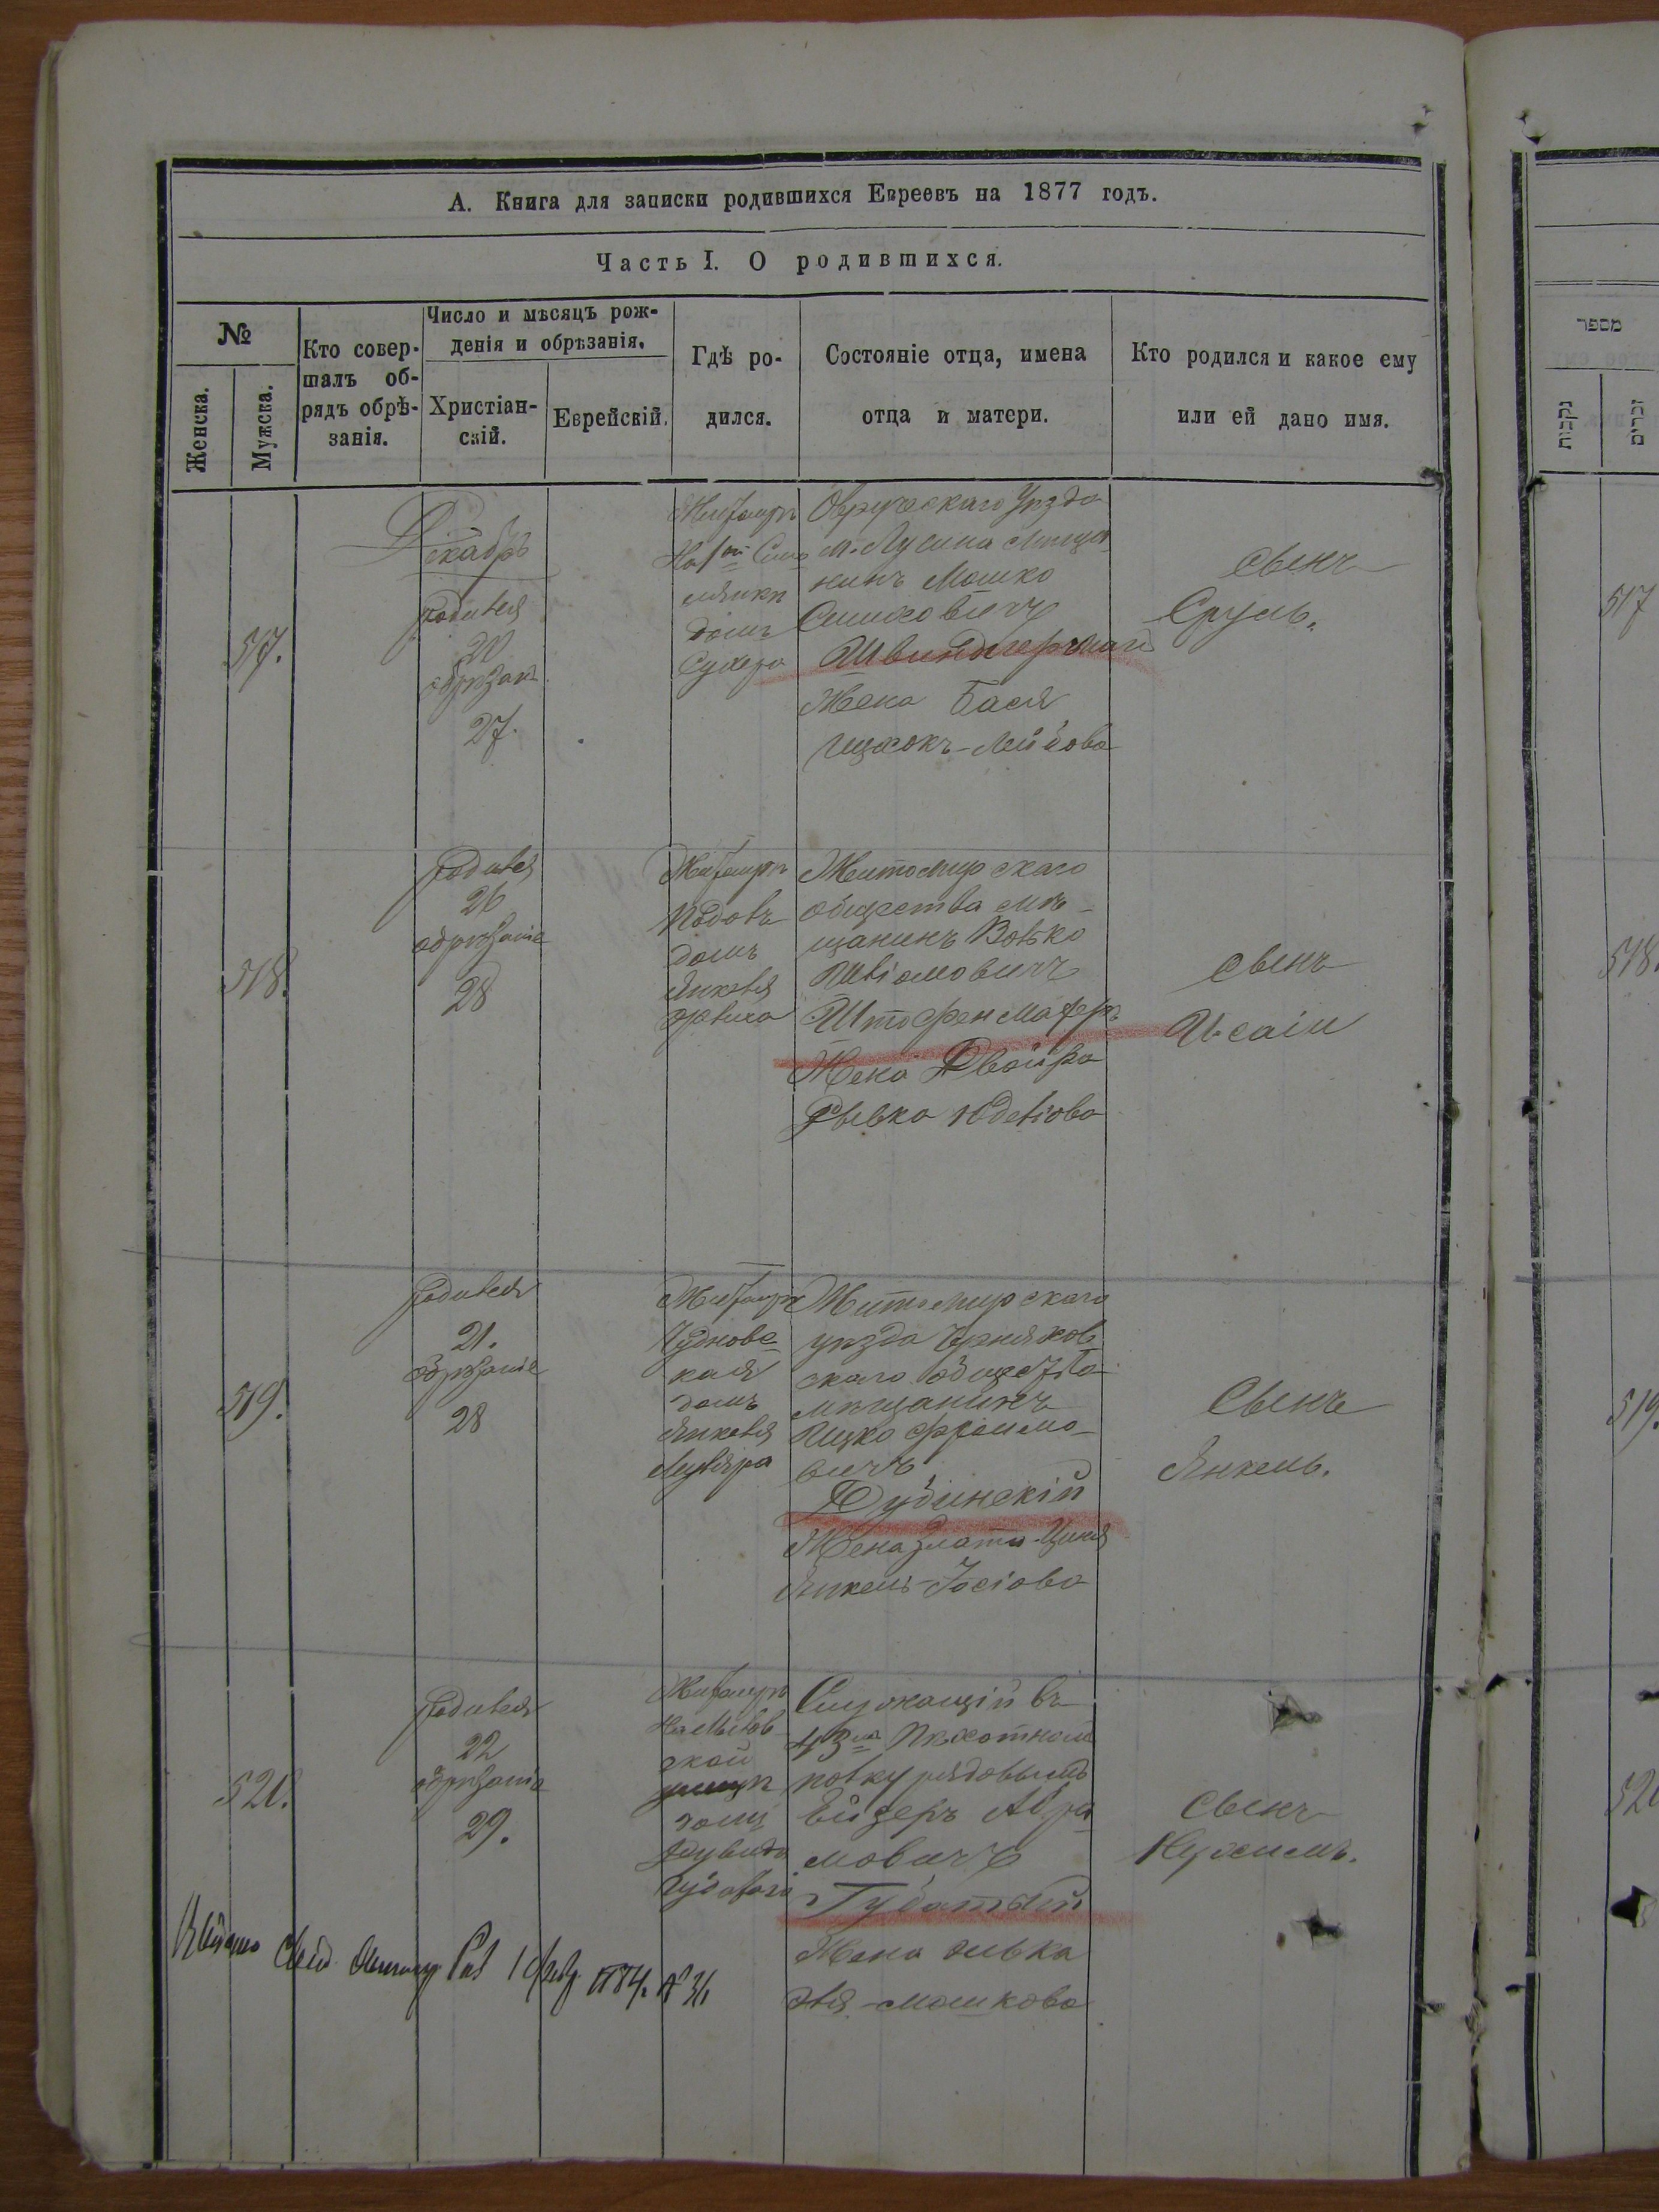 А. Книга для записки родившихся Евреевъ на 1877 годъ.
Часть I. О родившихся.
№
Женска.
Мужска.
Кто совер-
шалъ об-
рядъ обрѣ-
занія.
Число и мѣсяцъ рож-
денія и обрѣзанія.
Христіан-
скій.
Еврейскій.
Гдѣ ро-
дился.
Состояніе отца, имена
отца и матери.
Кто родился и какое ему
или ей дано имя.
517.
Декабрь
родился
20
обрѣзан
27.
Житомиръ
домъ
Овручскаго Уѣзда
м. Лугина мѣща
нинъ Мошко
Жена Бася
Ицхокъ-Лейбова
сынъ
Сруль.
518.
родился
26
обрѣзаніе
28
Житомиръ
домъ
Янкеля
Житомирскаго
общества мѣ-
щанинъ Волько
Жена Двойра
Рывка Юделіова
сынъ
519.
родился
21.
обрѣзаніе
28
Житомиръ
Чудновс
кая
домъ
Янкеля
Житомирскаго
уѣзда Черняхов
скаго общества
мѣщанинъ
Ицко Фроимо-
вичъ
Дубинскій
Жена Злата-Ципа
Янкель-Іосіова
Сынъ
Янкель.
520.
родился
22
обрѣзаніе
29.
Житомиръ
ской
Служащій въ
43мъ Пѣхотномъ
полку рядовымъ
Ейзеръ Абра
мовичъ
Губатый
Жена Ривка
Эля-Мошкова
сынъ
Нухимъ.
Выдано Свид. 1 Февр. 1884. № 31
מספר
נקבות
זכרים
517
518
519.
520